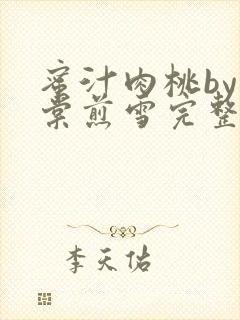 蜜汁肉桃by
棠煎雪完整
李天佑